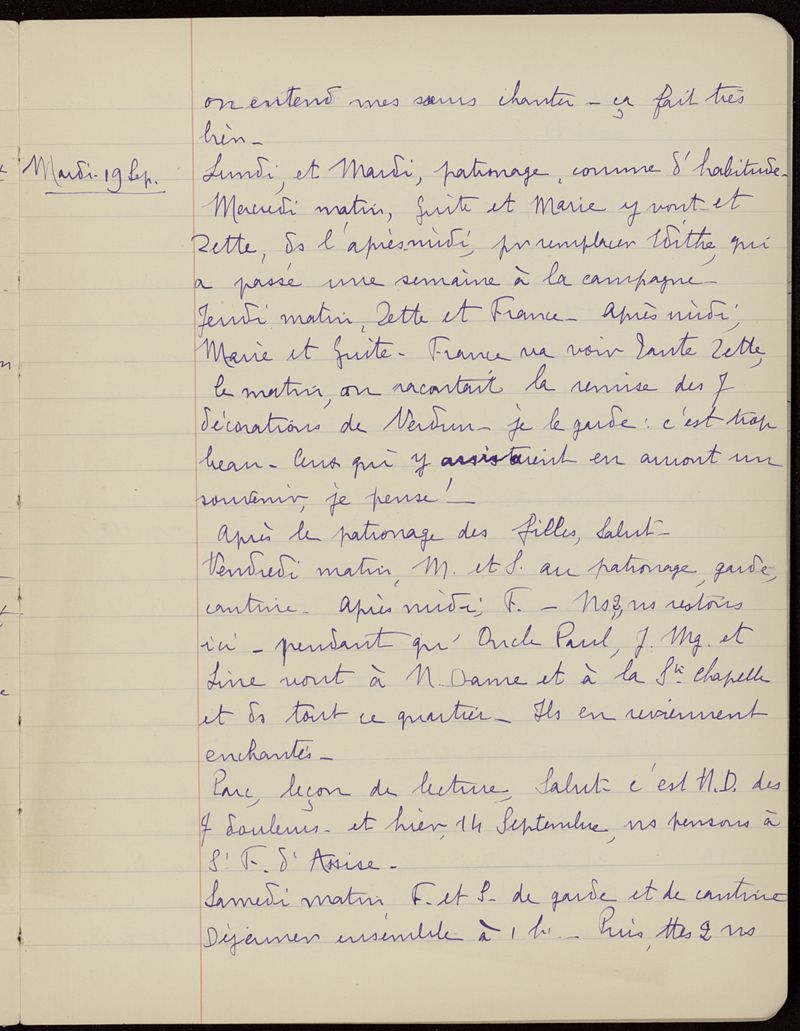 on entend mes sœurs chanter – ça fait très
bien –
Mardi – 19 Sep.
Lundi, et Mardi, patronage, comme d'habitude –
Mercredi matin, Guite et Marie y vont – et
Zette, ds l'après midi, pr remplacer Edithe, qui
a passé une semaine à la campagne –
Jeudi matin, Zette et France – Après midi,
Marie et Guite – France va voir Tante Zette,
le matin, on racontait la remise des 7
décorations de Verdun – je le garde : c'est trop
beau – Ceux qui y assistaient en auront un
souvenir, je pense ! –
Après le patronage des filles, Salut –
Vendredi matin, M. et S. au patronage, garde,
cantine – Après midi, F. – Ns 2, ns restons
ici – pendant qu' Oncle Paul, J. Mg. et
Line vont à N. Dame et à la Ste Chapelle
et ds tout ce quartier – Ils en reviennent
enchantés –
Parc, leçon de lecture, Salut – c'est N.D. des
7 douleurs – et hier, 14 Septembre, ns pensons à
St F. d'Assise –
Samedi matin F. et S. de garde et de cantine
Déjeuner ensemble à 1 h. – Puis, ttes 2 ns